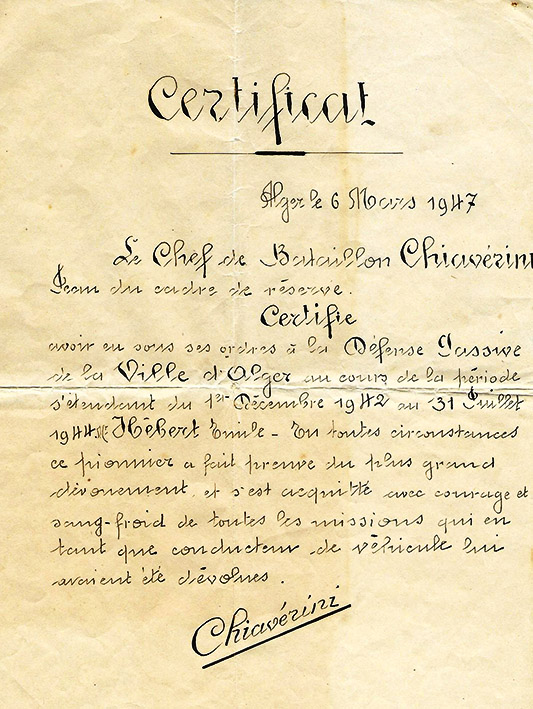 Certificat
Alger le 6 Mars 1947
Le Chef de Bataillon Chiavérini
Jean du cadre de réserve.
Certifie
avoir eu sous ses ordres à la Défense Passive
de la Ville d'Alger au cours de la période
s'étendant du 1er Décembre 1942 au 31 Juillet
1944 Mr Hébert Emile - En toutes circonstances
ce pionnier a fait preuve du plus grand
dévouement et s'est acquitté avec courage et
sang-froid de toutes les missions qui en
tant que conducteur de véhicule lui
avaient été dévolues.
Chiavérini